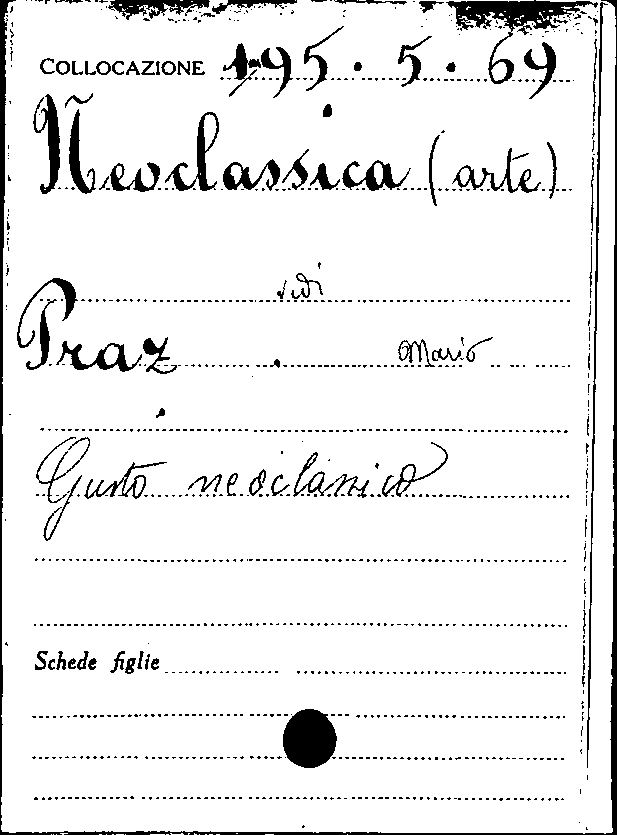 COLLOCAZIONE 195.5.69
Neoclassica (arte)
vedi
Praz. Mario
Gusto neoclassico
Schede figlie